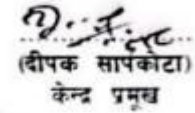 (दीपक सापकोटा)
केन्द्र प्रमुख